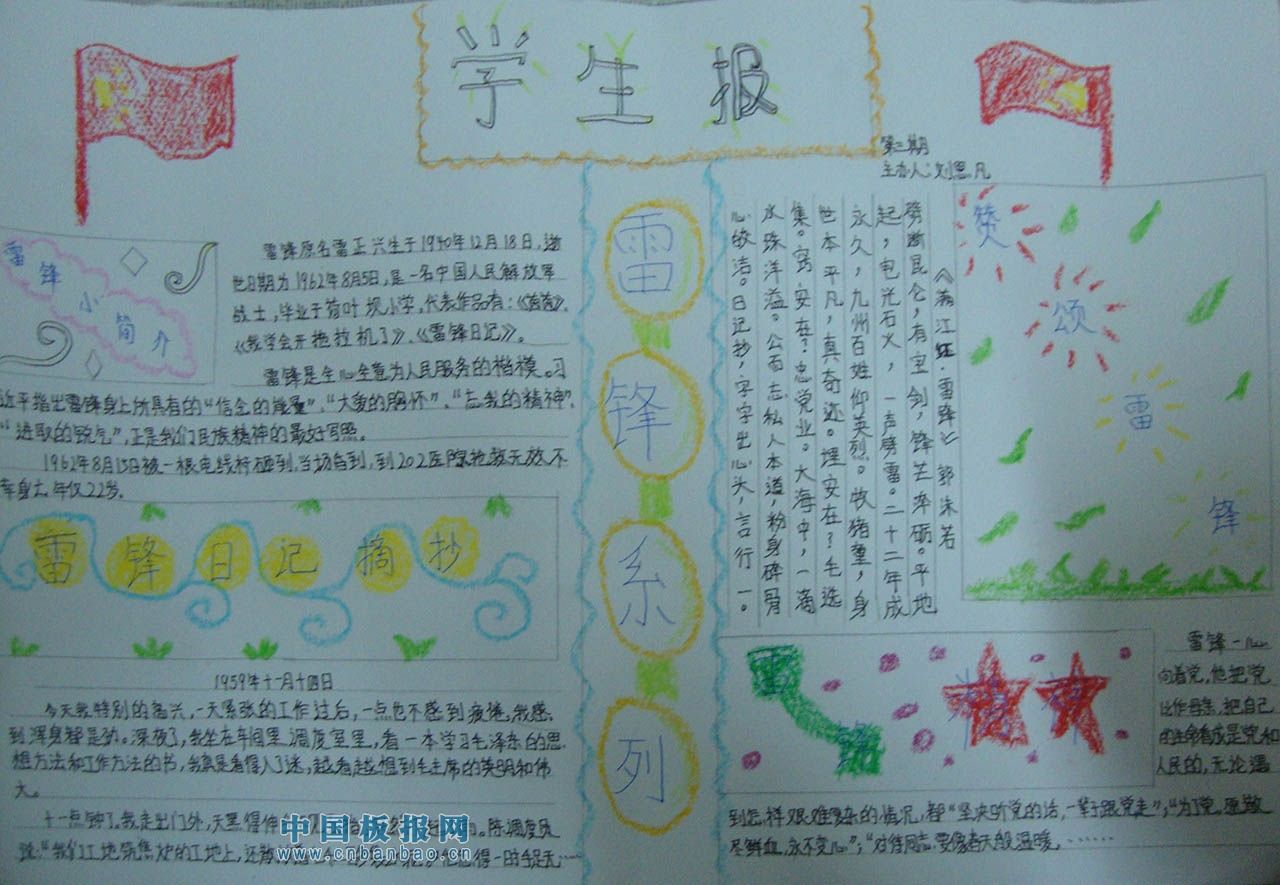 学生报
第三期
主办人：刘恩凡
雷锋系列
雷锋小简介
雷锋原名雷正兴生于1940年12月18日，逝
世日期为1962年8月5日，是一名中国人民解放军
战士，毕业于荷叶坝小学，代表作品有：《茵茵》、
《我学会开拖拉机了》、《雷锋日记》。
雷锋是全心全意为人民服务的楷模。习
近平指出雷锋身上所具有的“信念的能量”、“大爱的胸怀”、“忘我的精神”、
“进取的锐气”，正是我们民族精神的最好写照。
1962年8月15日被一根电线杆砸到，当场
到202医院抢救无效，不
幸身亡，年仅22岁。
雷锋日记摘抄
1959年十一月十四日
今天我特别的高兴，一天紧张的工作过后，一点也不感到疲倦，我感
到浑身都是劲。深夜了，我坐在车间里调度室里，看一本学习毛泽东的思
想方法和工作方法的书，我真是看得入了迷，越看越想到毛主席的英明和伟
大。
十一点钟了，我走出门外，天黑得伸
陈调度员
说：“我们工地炼焦炉的工地上，还
一时手足无……
赞颂雷锋
《满江红·雷锋》郭沫若
劈断昆仑，有宝剑，锋芒淬砺。平地
起，电光石火，一声劈雷。二十二年成
永久，九州百姓仰英烈。牧猪童，身
世本平凡，真奇迹。埋安在？毛选
集。窍安在？忠党业。大海中，一滴
水珠洋溢。公而忘私人本道，粉身碎骨
心皎洁。日记抄，字字出心头，言行一。
雷锋精神
雷锋一心
向着党，他把党
比作母亲，把自己
的生命看成是党和
人民的，无论遇
到怎样艰难复杂的情况，都“坚决听党的话，一辈子跟党走”；“为了党，愿
尽鲜血，永不变心”；“对待同志，要像春天般温暖……
中国板报网
www.cnbanbao.cn